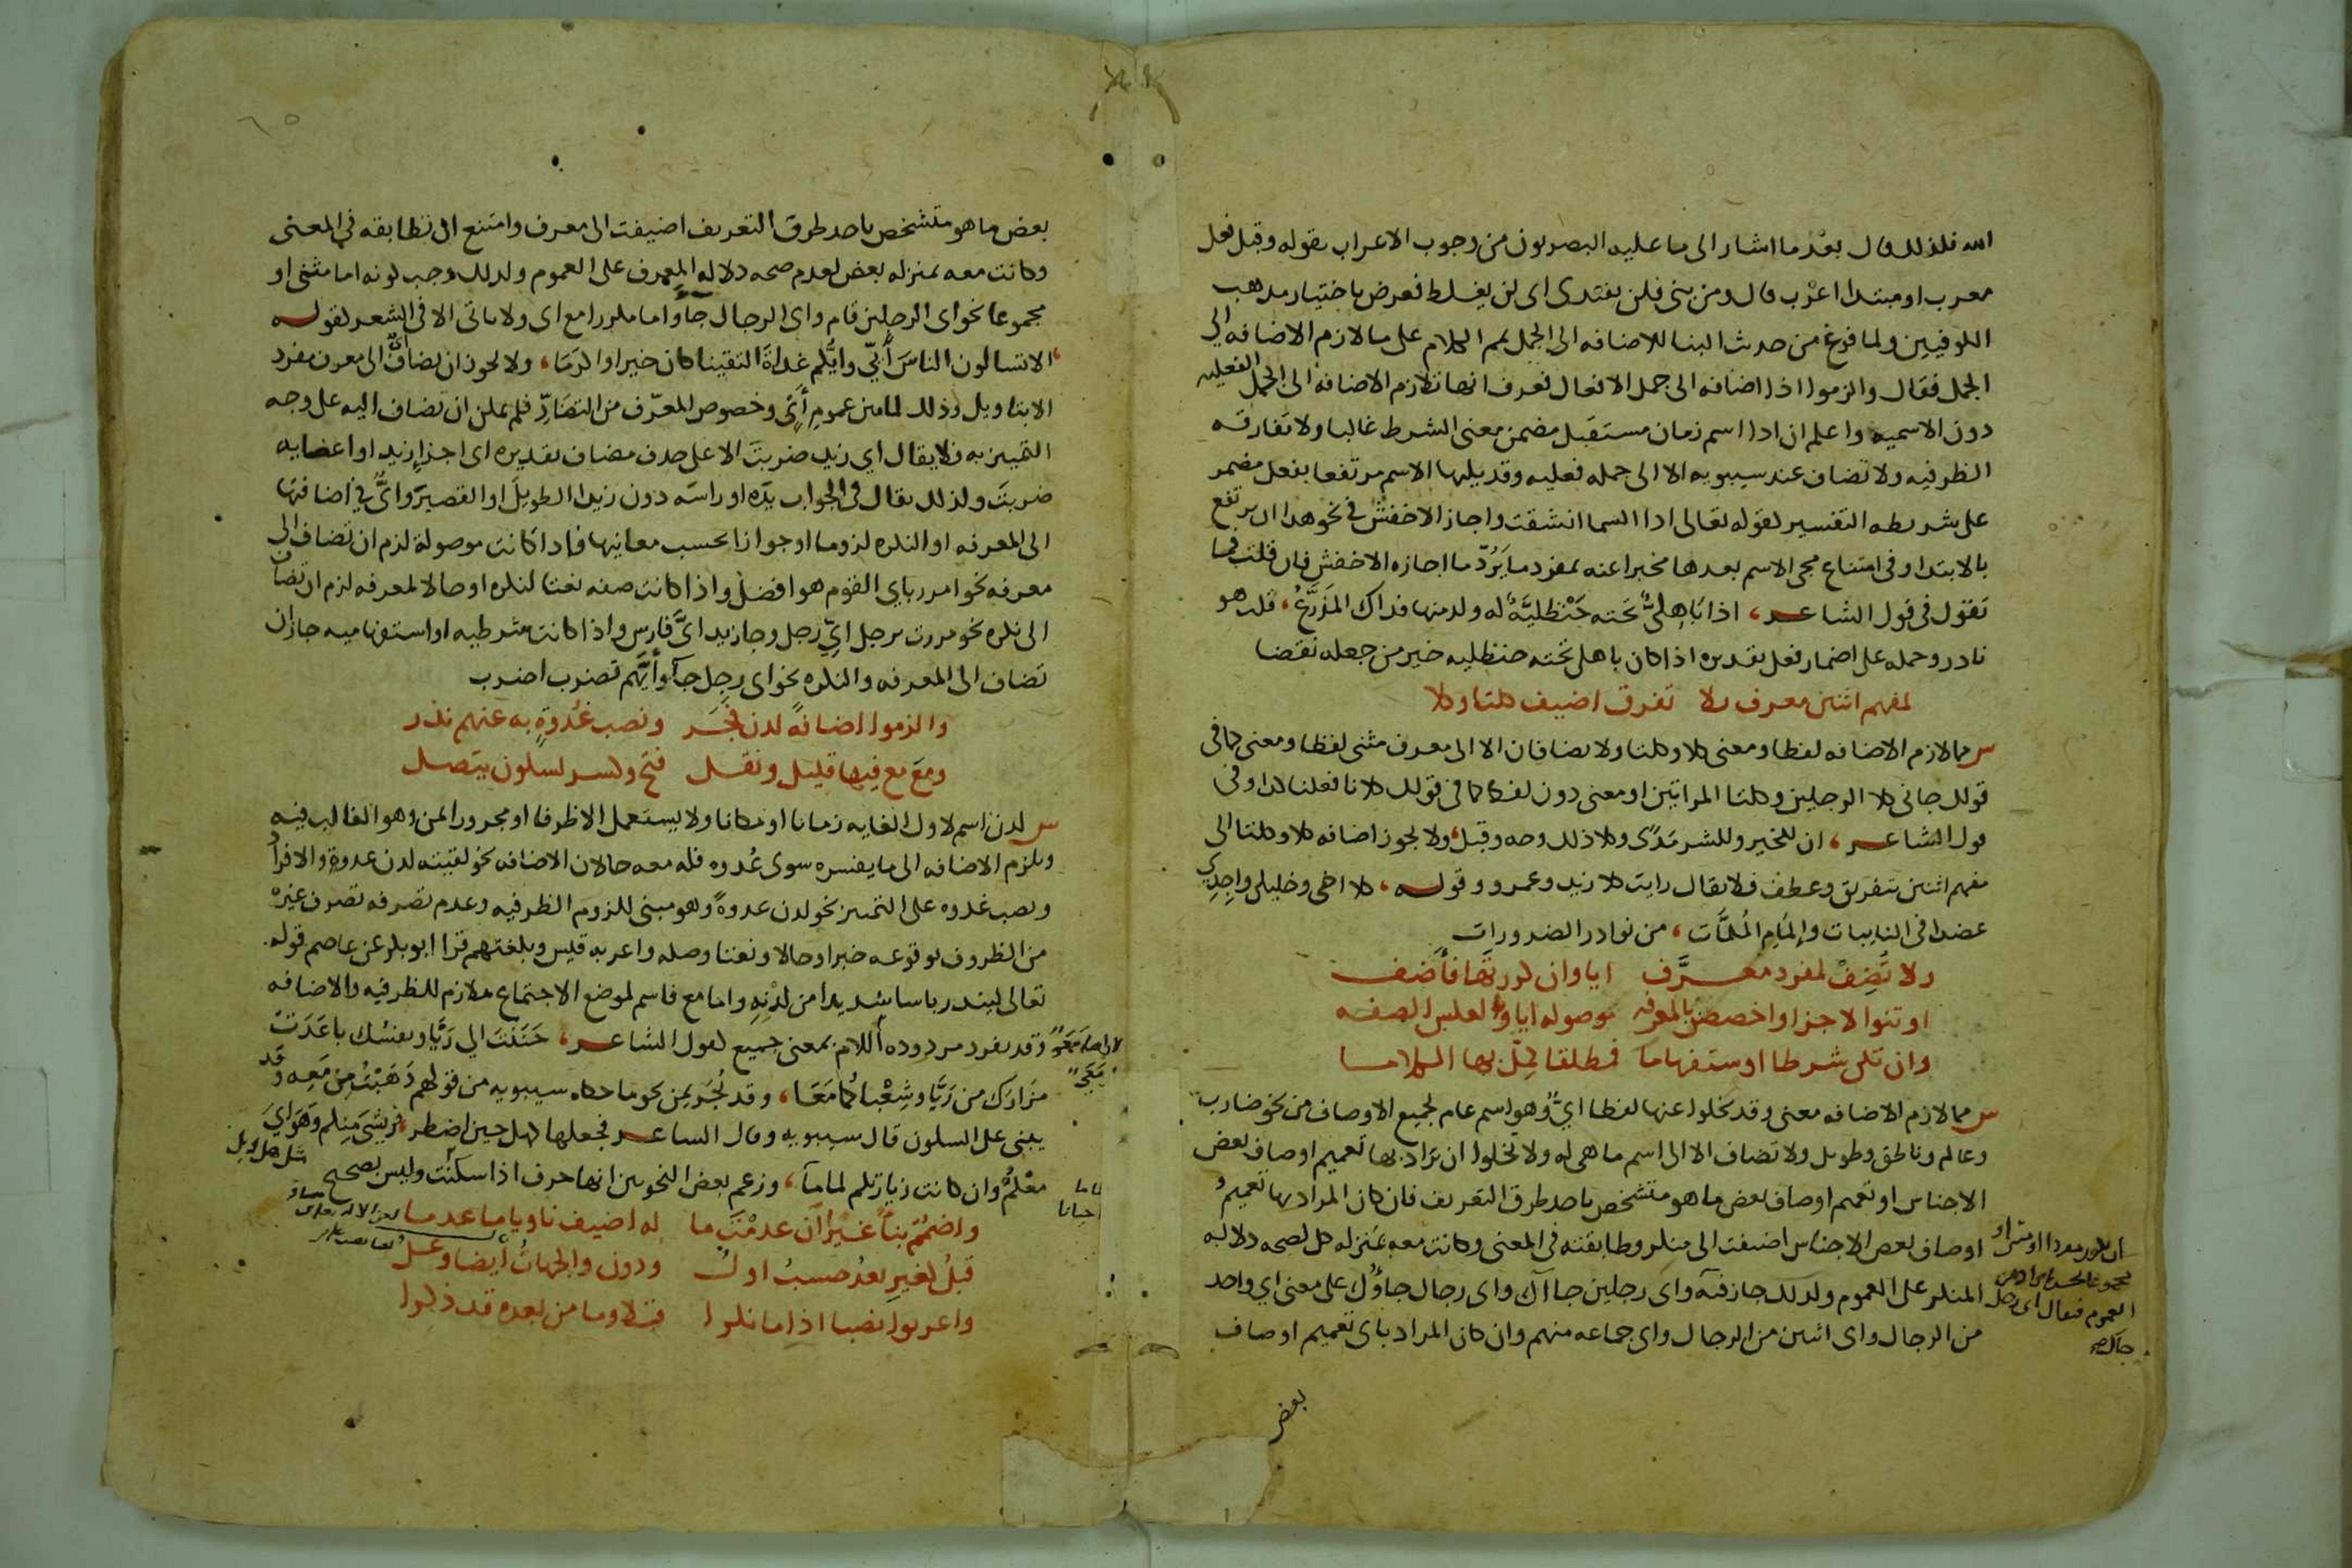 الله فلذلك قال بعد ما اشار الى ما عليه البصريون من وجوب الاعراب بقوله وقبل فعل
معرب او مبتدا اعرب قال ومن بنى فلن يفندا اى لن يغلط فعرض باختيار مذهب
الكوفيين ولما فرغ من حديث البنا للاضافه الى الجمل تمم الكلام على ما لازم الاضافه الى
الجمل فقال والزموا اذا اضافه الى جمل الافعال فعرف انها تلازم الاضافه الى الجمل الفعليه
دون الاسميه واعلم ان اذا اسم زمان مستقبل مضمن معنى الشرط غالبا ولا تفارقه
الظرفيه ولا تضاف عند سيبويه الا الى جمله فعليه وقد يليها الاسم مرتفعا بفعل مضمر
على شريطه التفسير لقوله تعالى اذا السما انشقت واجاز الاخفش فى نحو هذا ان يرتفع
بالابتدا وفى امتناع مجى الاسم بعدها مخبرا عنه بمفرد ما يَرُدّ ما اجازه الاخفش فان قلت فما
تقول فى قول الشاعر، اذا بَاهِلىٌّ تحته حَنْظليَّهٌ له ولد منها فذاك المذَرَّعُ، قلت هو
نادر وحمله على اضمار فعل تقديره اذا كان باهلى تحته حنظليه خير من جعله نقضا
لمفهم اثنين معرف بلا تفرق اضيف كلتا وكلا
س مما لازم الاضافه لفظا ومعنى كلا وكلتا ولا يضافان الا الى معرف مثنى لفظا ومعنى كما فى
قولك جانى كلا الرجلين وكلتا المراتين او معنى دون لفظ كما فى قولك كلانا فعلنا كذا وفى
قول الشاعر، ان للخير وللشر مَدًى وكلا ذلك وجه وقبل، ولا يجوز اضافه كلا وكلتا الى
مفهم اثنين بتفريق وعطف فلا يقال رايت كلا زيد وعمرو وقوله، كلا اخى وخليلى واجِدِي
عضدا فى النايبات وإلمَامِ المُلمَّات، من نوادر الضرورات
ولا تُضِفْ لمفرد معرَّف ايا وان كررتها فأضف
او تنوا الاجزا واخصصن بالمعرفه موصوله ايا وبالعكس الصفه
وان تكن شرطا او ستفهاما فمطلقا كمّل بها الكلاما
س مما لازم الاضافه معنى وقد يخلوا عنها لفظا ايٌّ وهو اسم عام لجميع الاوصاف من نحو ضارب
وعالم وناطق وطويل ولا تضاف الا الى اسم ما هى له ولا تخلوا ان يراد بها تعميم اوصاف بعض
الاجناس او تعميم اوصاف بعض ما هو متشخص باحد طرق التعريف فان كان المراد بها تعميم
اوصاف بعض الاجناس اضيفت الى منكر وطابقته فى المعنى وكانت معه بمنزله كل لصحه دلاله
المنكر على العموم ولذلك جاز فيه واى رجلين جااك واى رجال جاؤُك على معنى اي واحد
من الرجال واى اثنين من الرجال واى جماعه منهم وان كان المراد باى تعميم اوصاف
بعض
بعض ما هو متشخص باحد طرق التعريف اضيفت الى معرف وامتنع ان تطابقه فى المعنى
وكانت معه بمنزله بعض لعدم صحه دلاله المعرف على العموم ولذلك وجب كونه اما مثنى او
مجموعا نحو اى الرجلين قام واى الرجال جاؤا واما مكررا مع اى ولا ياتى الا فى الشعر لقوله
الا تسالون الناسَ أَيّي وايُّكم غداةَ التقينا كان خيرا واكرَمَا، ولا يجوز ان يضاف الى معرف مفرد
الا بتاويل وذلك لما بين عمومِ أيٍّ وخصوص المعرّف من التضَادِّ فلم يمكن ان تضاف اليه على وجه
التمييز به فلا يقال اي زيد ضربتَ الا على حذف مضاف تقديره اى اجزاء زيد او اعضايه
ضربتَ ولذلك يقال فى الجواب يدَه او راسَه دون زيدا الطويلَ او القصيرَ وايٌّ فى اضافتها
الى المعرفه او النكره لزوما او جوازا بحسب معانيها فاذا كانت موصولة لزم ان تضاف الى
معرفه نحو امرر باي القوم هو افضل واذا كانت صفه نعتا لنكره او حالا لمعرفه لزم ان تضاف
الى نكره نحو مررت برجل ايِّ رجل وجا زيد ايَّ فارس واذا كانت شرطيه او استفهاميه جاز ان
تضاف الى المعرفه والنكره نحو اى رجل جا وأيَّهم تضرب اضرب
والزموا اضافةً لدن فجَر ونصب غُدوةٍ به عنهم ندر
ومعَ معْ فيها قليل ونقل فتح وكسر لسكون يتصل
س لدن اسم لاول الغايه زمانا او مكانا ولا يستعمل الا ظرفا او مجرورا بمن وهو الغالب فيه
ويلزم الاضافه الى ما يفسره سوى غُدوه فله معه حالان الاضافه نحو لقيته لدن غدوةٍ والافراد
ونصب غدوه على التمييز نحو لدن غدوةً وهو مبنى للزوم الظرفيه وعدم تصرفه تصرف غيره
من الظروف بوقوعه خبرا وحالا ونعتا وصله واعربه قيس وبلغتهم قرا ابو بكر عن عاصم قوله
تعالى لينذر باسا شديدا من لدْنِهِ واما مع فاسم لموضع الاجتماع ملازم للظرفيه والاضافه
وقد يفرد مردوده اللام بمعنى جميع لقول الشاعر، حَنَنتَ الى رَيَّا ونفسُك باعَدَت
مَزَارَك من رَيَّا وشِعْباكُمَا مَعَا، وقد تُجَر بمن نحو ما حكاه سيبويه من قولهم ذَهَبْتُ مِن مَعِه وقد
يبنى على السكون قال سيبويه وقال الشاعر فجعلها كهل حين اضطر، فريشى مِنكم وَهَوَايَ
معْكمُ وان كانت زيارتكم لماما، وزعم بعض النحويين انها حرف اذا سكنت وليس بصحيح
واضمُمْ بناً غيْراً اَن عدمْتَ ما له اضيف ناويا ما عدما
قبلُ كغيرِ بعدُ حسبُ اولُ ودون والجهاتُ أيضا وعلُ
واعربوا نصبا اذا ما نكرا قبلا وما من بعده قد ذكرا